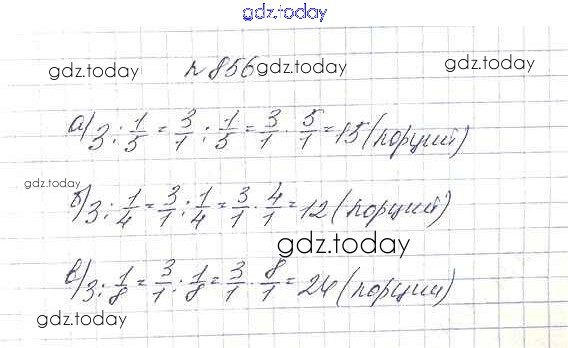 gdz.today
gdz.today №856 gdz.today gdz.today
а) 3 : 1/5 = 3/1 : 1/5 = 3/1 · 5/1 = 15 (порций)
gdz.today
б) 3 : 1/4 = 3/1 : 1/4 = 3/1 · 4/1 = 12 (порций)
gdz.today
в) 3 : 1/8 = 3/1 : 1/8 = 3/1 · 8/1 = 24 (порции)
gdz.today